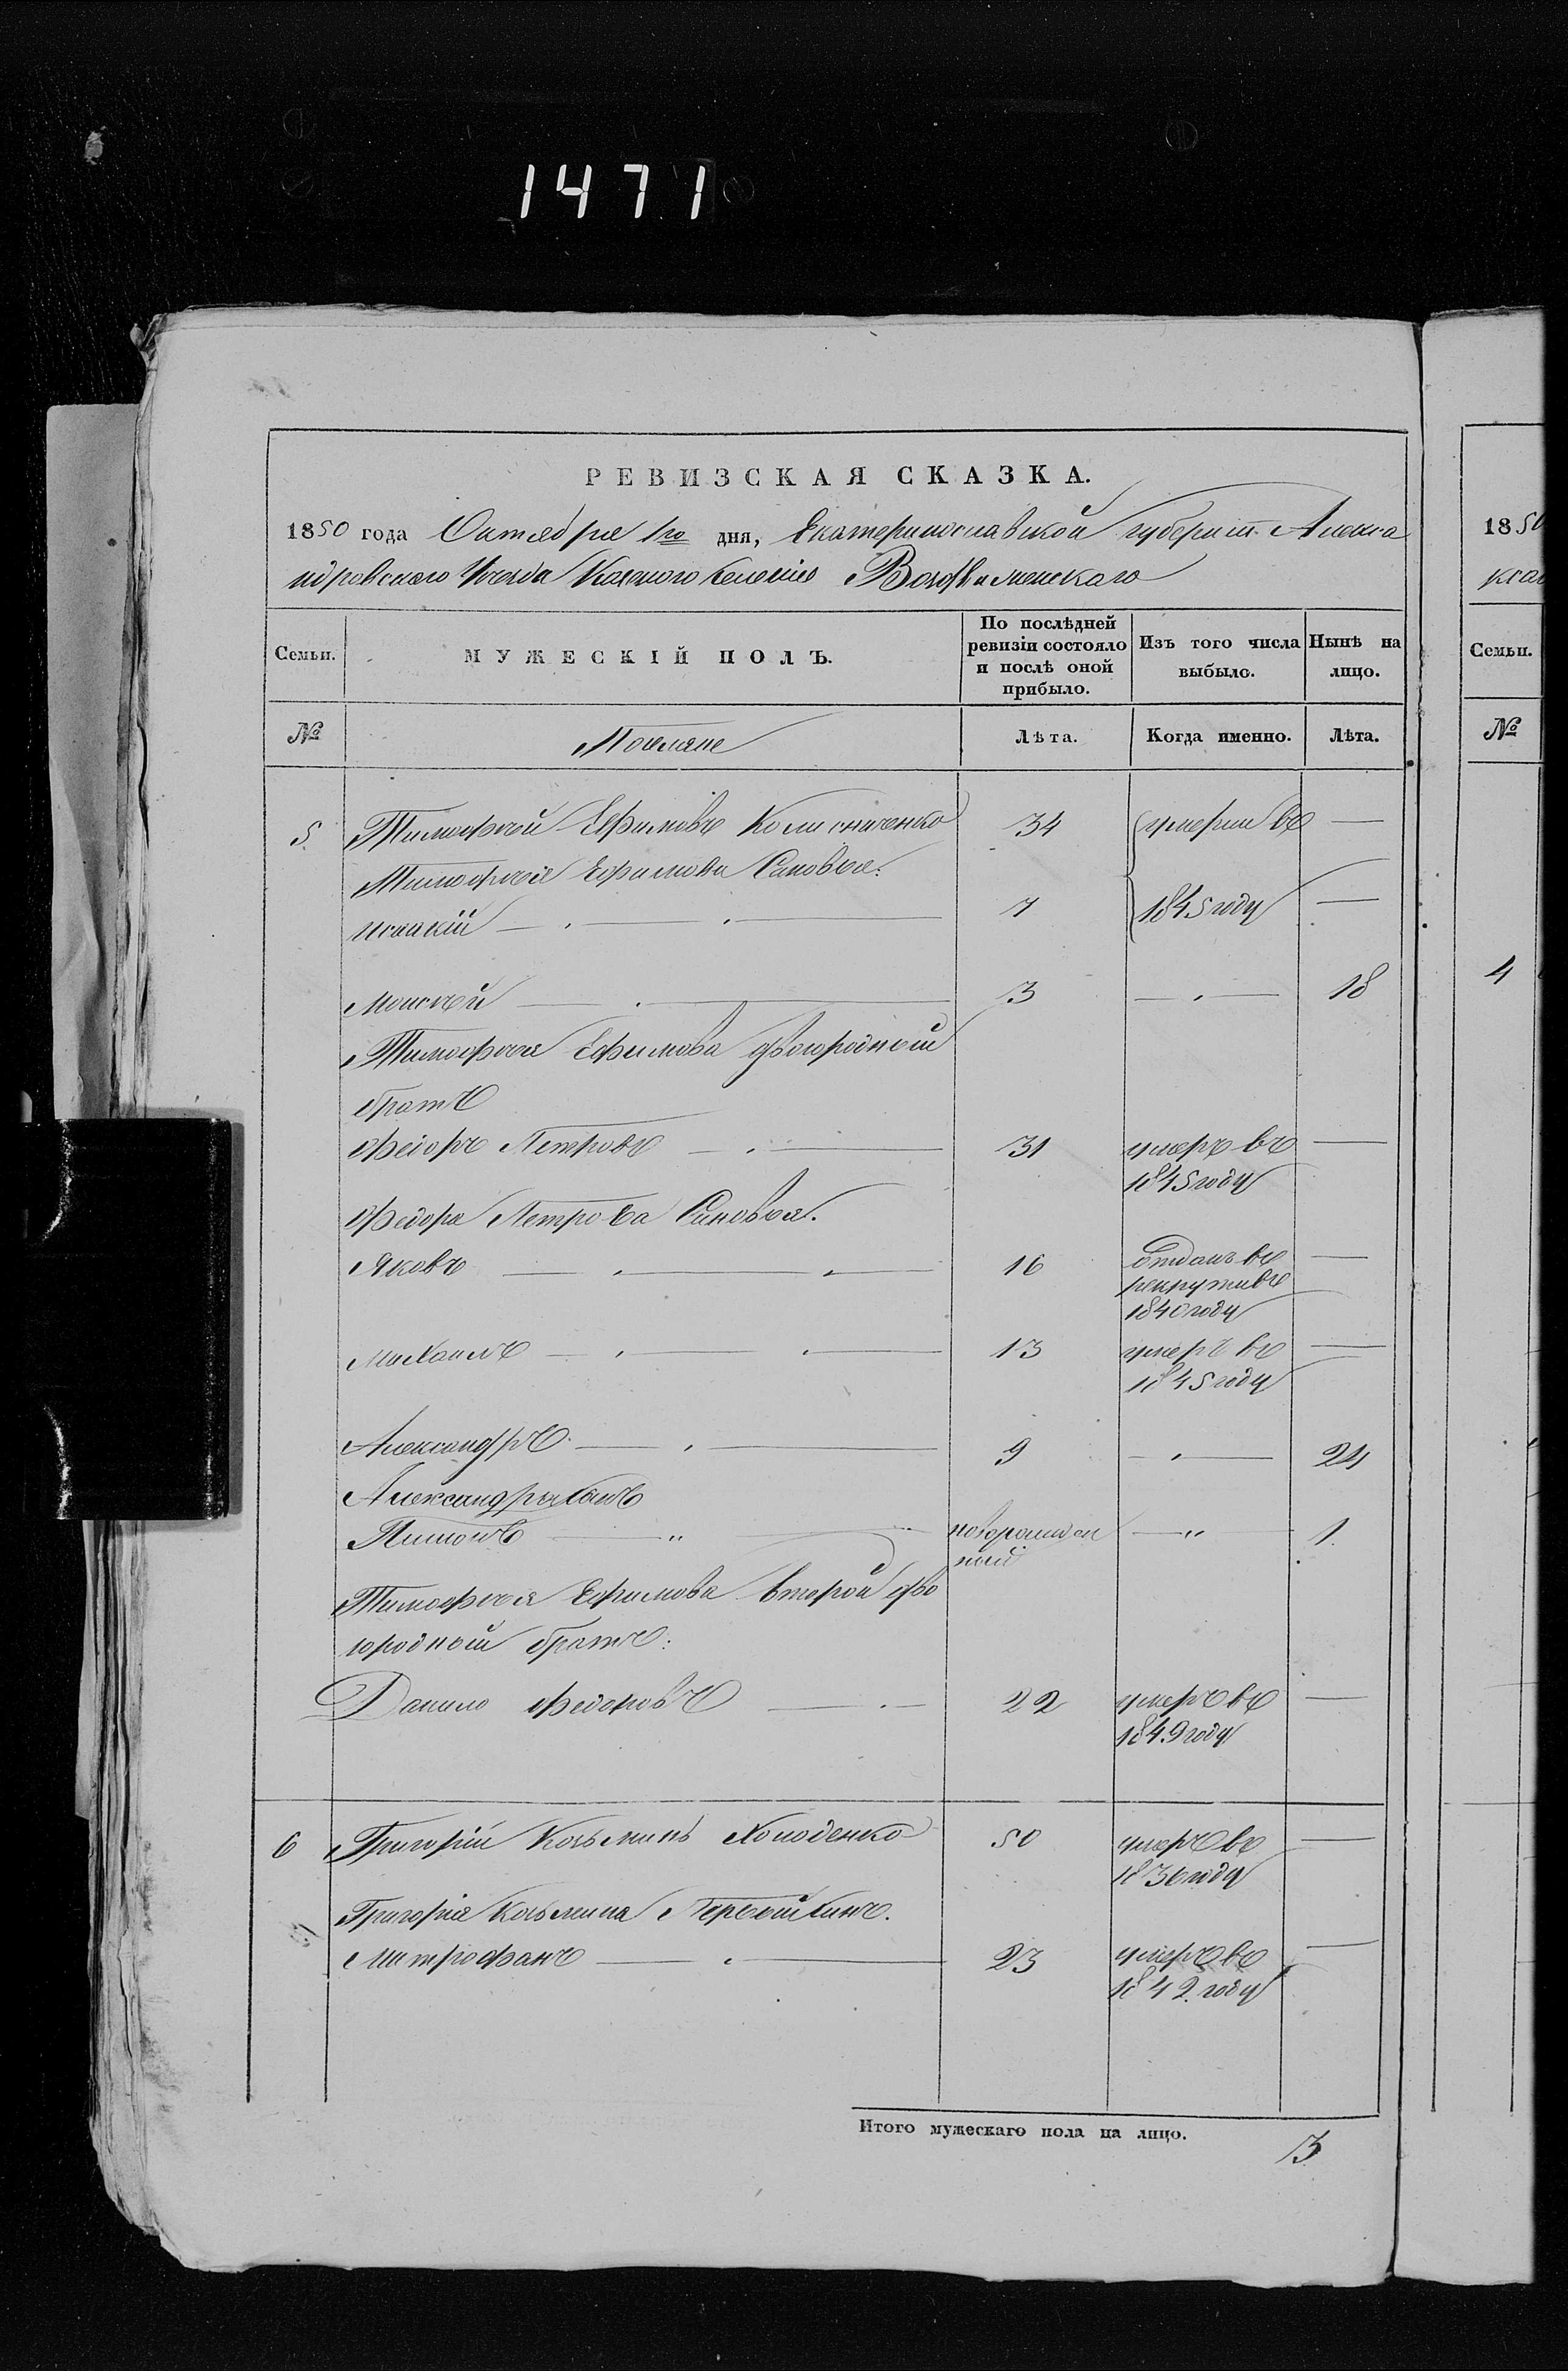 1471
РЕВИЗСКАЯ СКАЗКА.
1850 года Октября 1го дня, Екатеринославской губерніи Алекса
ндровскаго Уезда Казенаго селенія Воздвиженскаго
Семьи. МУЖЕСКІЙ ПОЛЪ. По послѣдней ревизіи состояло и послѣ оной прибыло. Изъ того числа выбыло. Нынѣ на лицо.
№ Поселяне Лѣта. Когда именно. Лѣта.
5 Тимофѣй Ефимовъ Колисниченко 34 умерли въ —
Тимофѣя Ефимова Сыновья:
Исаакій — 7 1845 году —
Моисѣй — 3 — 18
Тимофѣя Ефимова двоюродный
братъ
Федоръ Петровъ — 31 умеръ въ —
1845 году
Федора Петрова Сыновья.
Яковъ — 16 отданъ въ —
рекруты въ
1840 году
Михаилъ — 13 умеръ въ —
1845 году
Александръ — 9 — 24
Александра сынъ
Пименъ — новорожден — 1.
ный
Тимофѣя Ефимова второй дво
юродный братъ:
Данило Федоровъ — 22 умеръ въ —
1849 году
6 Григорій Козьминъ Холоденко 50 умеръ въ —
1836 году
Григорія Козьмина Первый сынъ.
Митрофанъ — 23 умеръ въ —
1842 году
Итого мужескаго пола на лицо. 3
1850
Семьи.
№
4